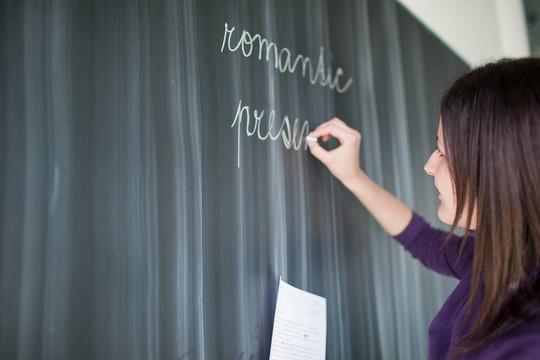 romantic
presen